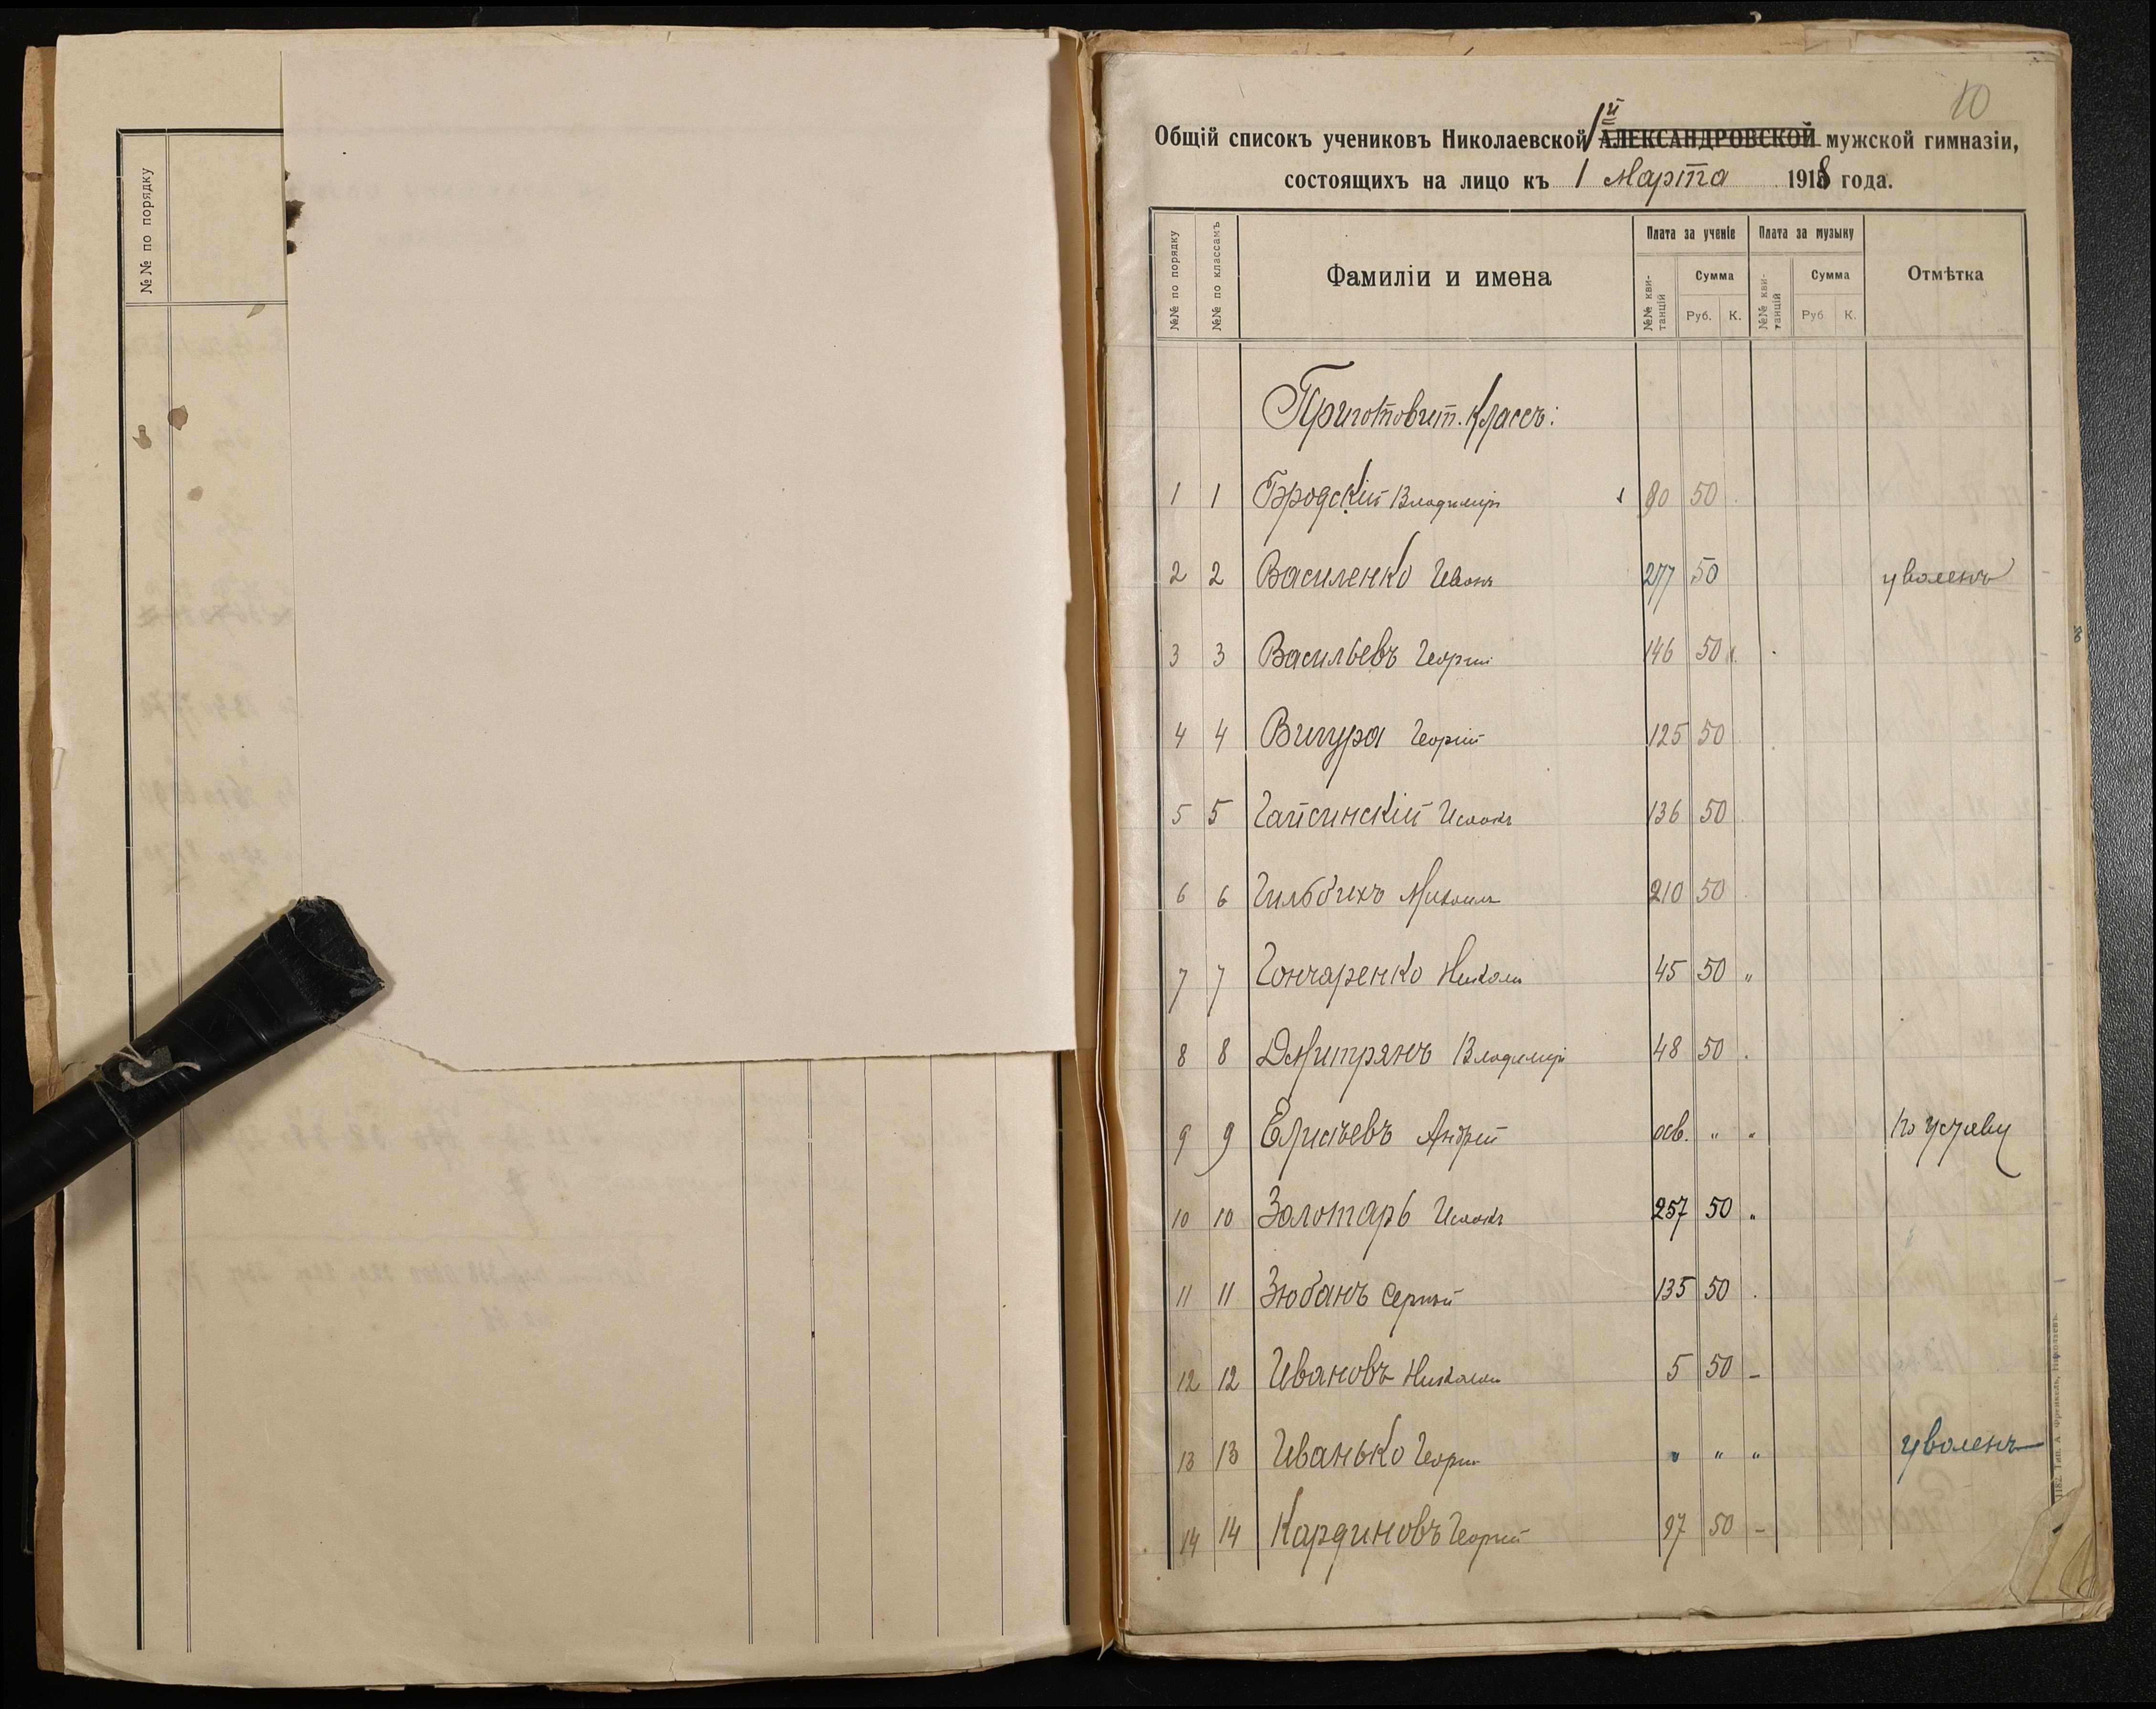 №№ по порядку
10
1й
Общій списокъ учениковъ Николаевской АЛЕКСАНДРОВСКОЙ мужской гимназіи,
состоящихъ на лицо къ 1 Марта 1918 года.
№№ по порядку №№ по классамъ Фамиліи и имена Плата за ученіе Плата за музыку Отмѣтка
№№ квитанцій Сумма №№ квитанцій Сумма
Руб. К. Руб. К.
Приготовит. классъ:
1 1 Бродскій Владиміръ 80 50
2 2 Василенко Иванъ 277 50 уволенъ
3 3 Васильевъ Георгій 146 50
4 4 Вигура Георгій 125 50
5 5 Гайсинскій Исаакъ 136 50
6 6 Гильбихъ Михаилъ 210 50
7 7 Гончаренко Николай 45 50 "
8 8 Дмитрянъ Владиміръ 48 50
9 9 Елисѣевъ Андрей осв. " "
10 10 Золотарь Исаакъ 257 50 "
11 11 Зюбанъ Сергѣй 135 50
12 12 Ивановъ Николай 5 50 -
13 13 Иванько Георгій " " " уволенъ
14 14 Кардиновъ Георгій 97 50 -
1182. Тип. А. Френкель, Николаевъ.